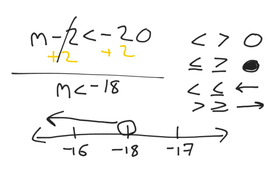 m-2<-20
+2 +2
m<-18
-16 -18 -17
< > ○
≤ ≥ ●
< ≤ ←
> ≥ →